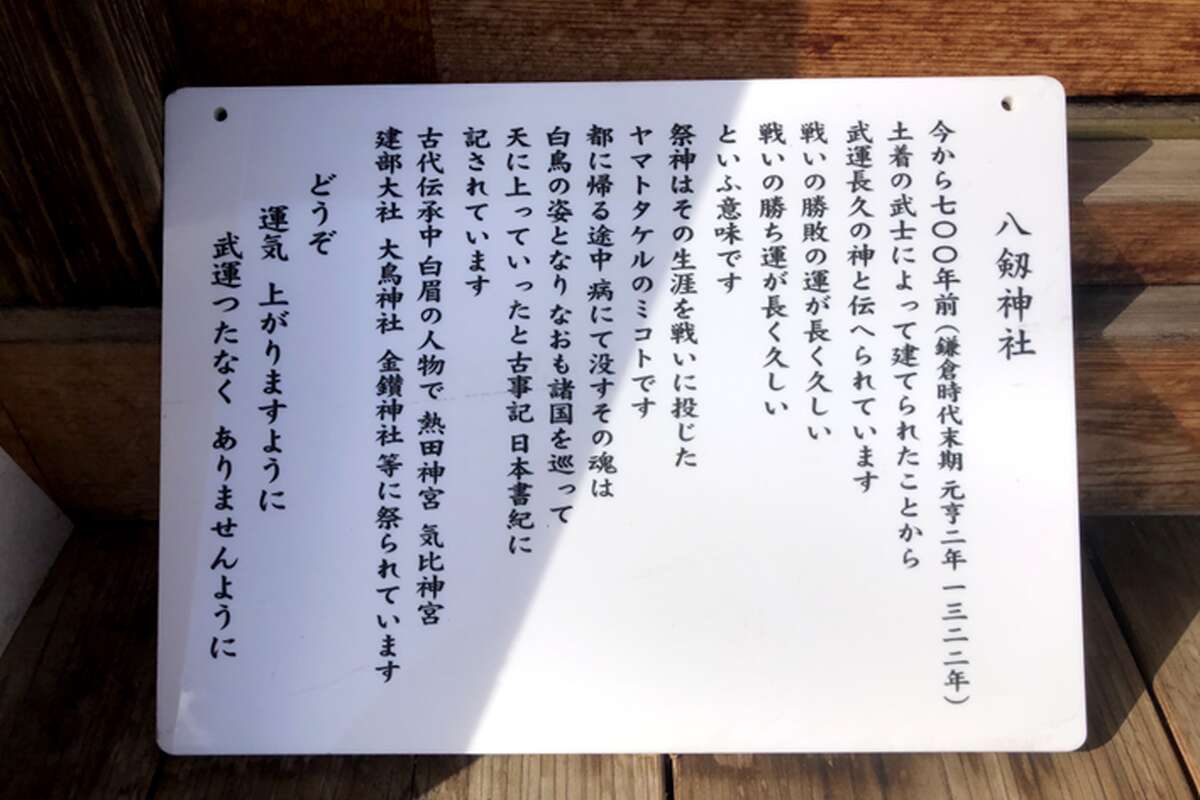 八剱神社
今から七〇〇年前(鎌倉時代末期 元亨二年 一三二二年)
土着の武士によって建てられたことから
武運長久の神と伝へられています
戦いの勝敗の運が長く久しい
戦いの勝ち運が長く久しい
といふ意味です
祭神はその生涯を戦いに投じた
ヤマトタケルのミコトです
都に帰る途中 病にて没すその魂は
白鳥の姿となり なおも諸国を巡って
天に上っていったと古事記 日本書紀に
記されています
古代伝承中 白眉の人物で 熱田神宮 気比神宮
建部大社 大鳥神社 金鑚神社 等に祭られています
どうぞ
運気 上がりますように
武運つたなく ありませんように